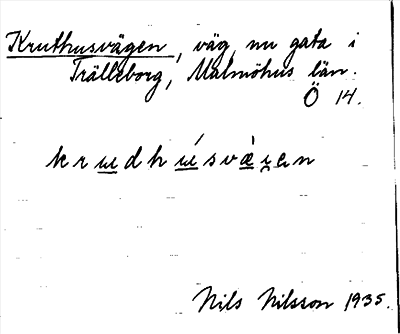 Kruthusvägen, väg, nu gata i
Trälleborg, Malmöhus län.
Ö 14.
krudhúsvæ̀gen
Nils Nilsson 1935.